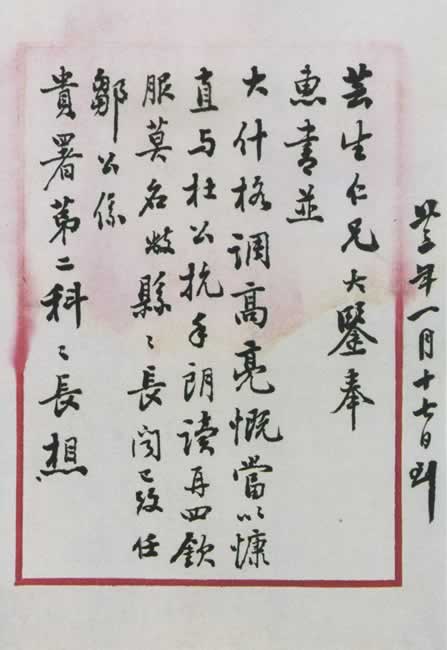 年一月十七日到
芸生仁兄大鑒奉
惠書並
大什格調高亮慨當以慷
直与杜公抗手朗讀再四欽
服莫名敝縣〻長聞已改任
鄒公係
貴署第二科〻長想